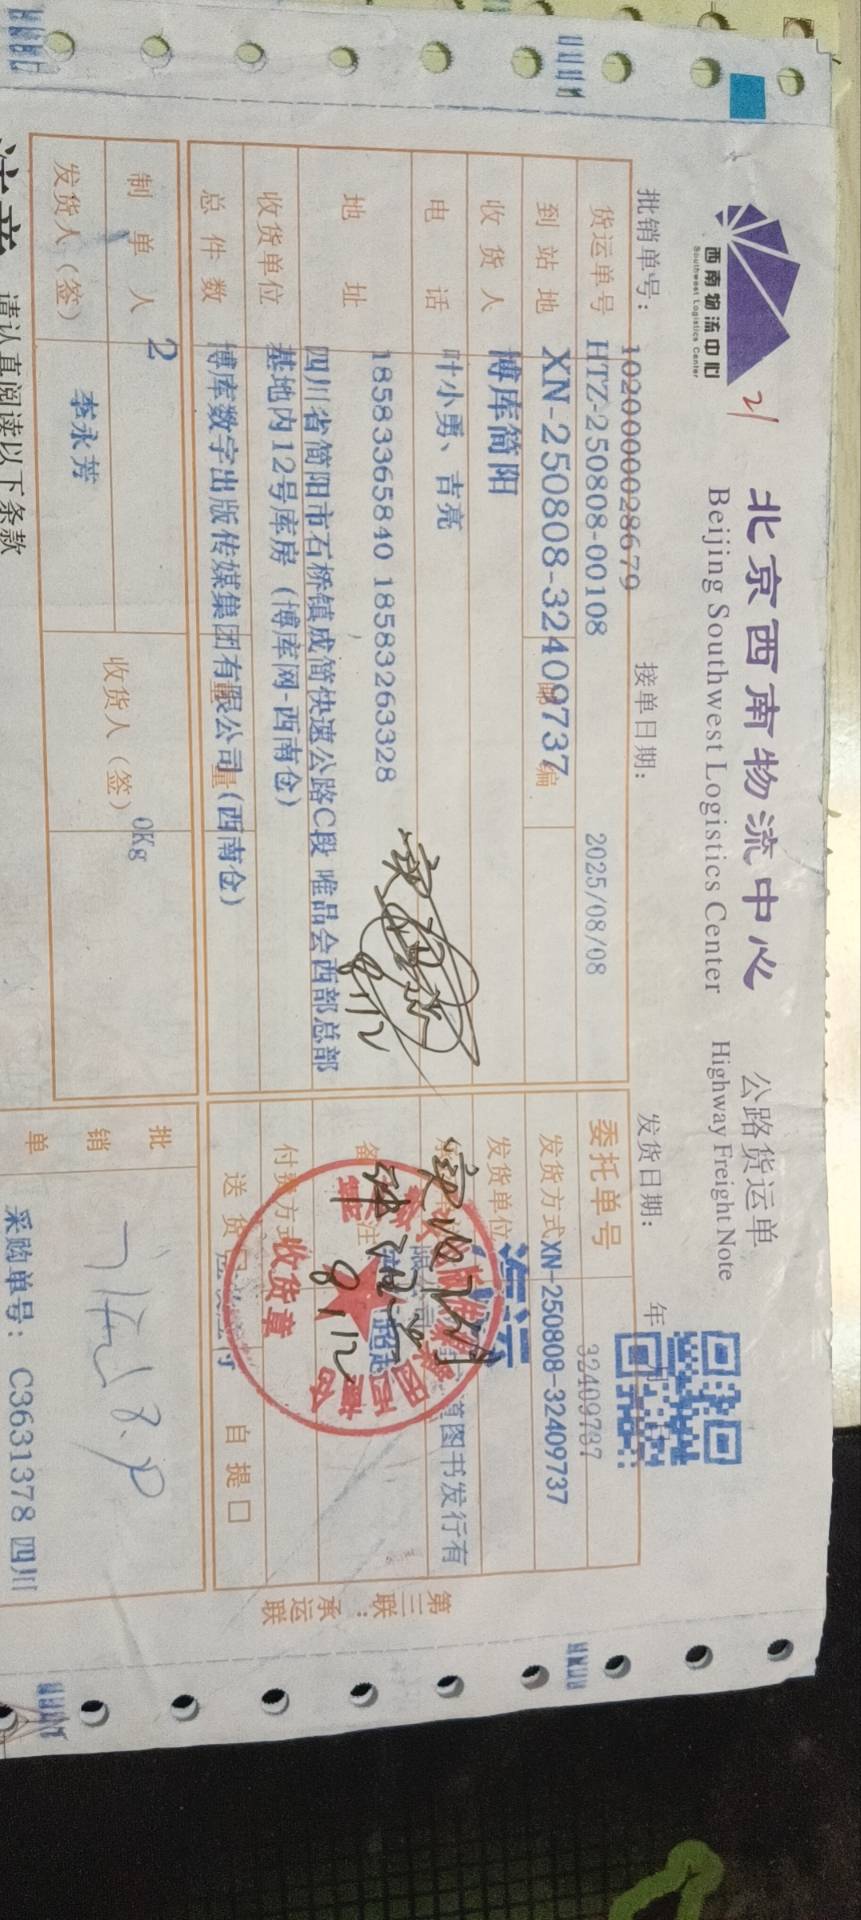 西南物流中心
Southwest Logistics Center
21
北京西南物流中心 公路货运单
Beijing Southwest Logistics Center Highway Freight Note
批销单号： 10200000028679 接单日期： 2025/08/08 发货日期： 年 月
货运单号 HTZ-250808-00108 委托单号 32409737
到站地 XN-250808-32409737 邮编 发货方式 XN-250808-32409737
收货人 博库简阳 发货单位 汽运
电话 叶小勇、吉亮 道图书发行有
限公司
地址 18583365840 18583263328 备注
四川省简阳市石桥镇成简快速公路C段 唯品会西部总部
收货单位 基地内12号库房（博库网-西南仓） 付费方式
总件数 博库数字出版传媒集团有限公司（西南仓） 送货 自提口
收货章
8/12
8/12
制单人 2 收货人（签） 0Kg
发货人（签） 李永芳
批销单
采购单号：C3631378 四川
第三联：承运联
注意 请认真阅读以下条款